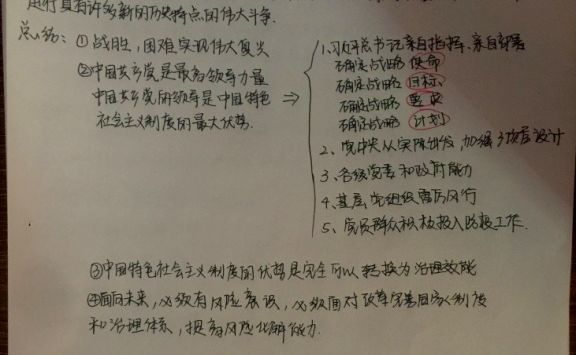 进行具有许多新的历史特点的伟大斗争.
总结: ①战胜,困难实现伟大复兴
②中国共产党是最高领导力量
中国共产党的领导是中国特色
社会主义制度的最大优势.
⇒
1.习近平总书记亲自指挥、亲自部署
确定战略 使命
确定战略 目标、
确定战略 要求
确定战略 计划
2、党中央从实际出发,加强了顶层设计
3、各级党委和政府能力
4、基层党组织雷厉风行
5、党员群众积极投入防控工作.
③中国特色社会主义制度的优势是完全可以转换为治理效能
④面向未来,必须有风险意识,必须面对改革完善国家制度
和治理体系,提高风险化解能力.